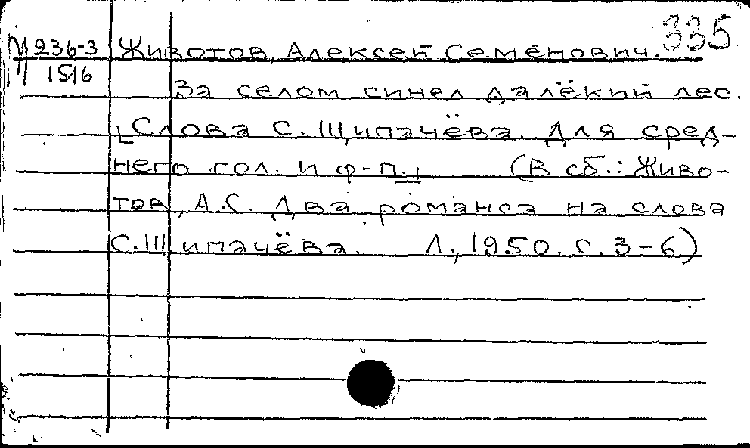 335
М 236-3 Животов, Алексей Семёнович.
1516
За селом синел далёкий лес.
[Слова С. Щипачёва. Для сред-
него гол. и ф-п.] (В сб.: Живо-
тов, А.С. Два романса на слова
С. Щипачёва. Л., 1950. с. 3-6)